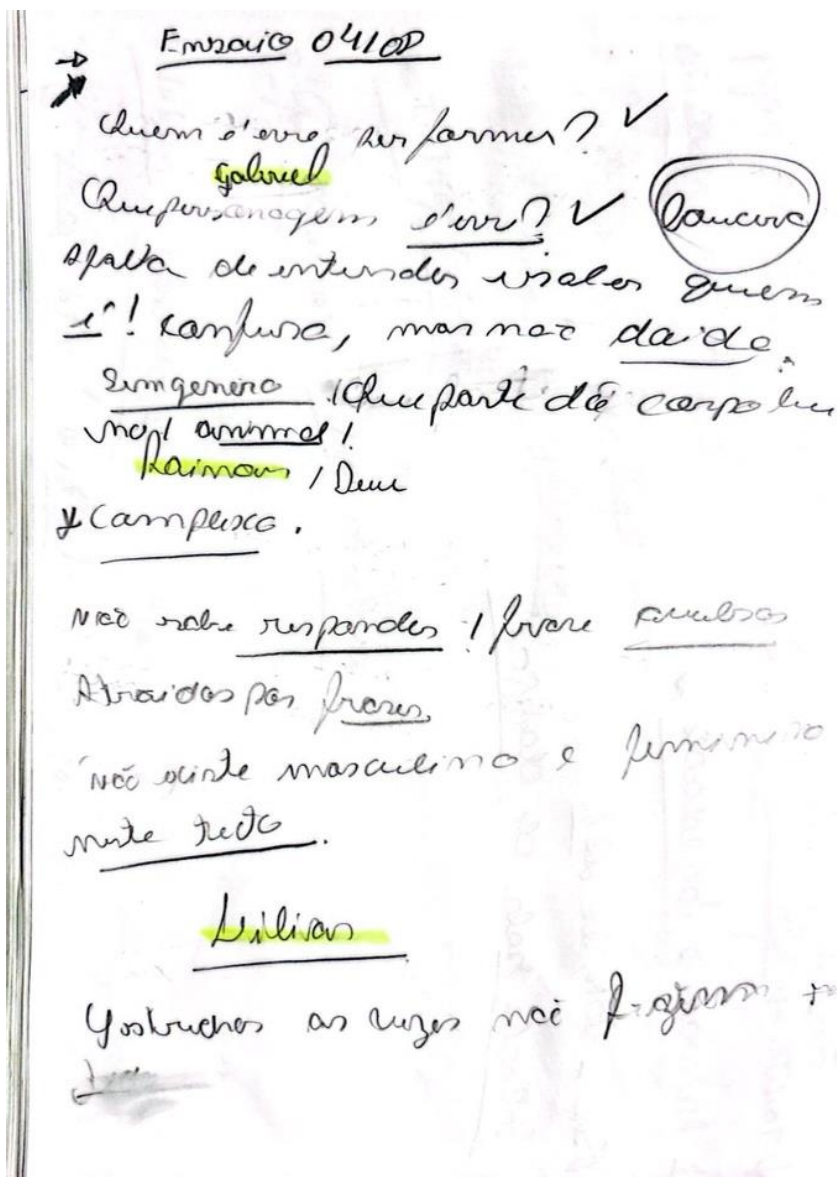 Ensaio 04/08
Quem é esse ser performer? ✓
gabriel
Que personagem é esse? ✓ loucura
falta de entender e saber quem
é! confusa, mas não doido.
Sem genero / Que parte do corpo hu
mano / animal /
Raimon / Deus
* Complexo.
não sabe responder / frase avulsas
Atraidos por frases.
não existe masculino e feminino
neste texto.
Lilian
as vezes não